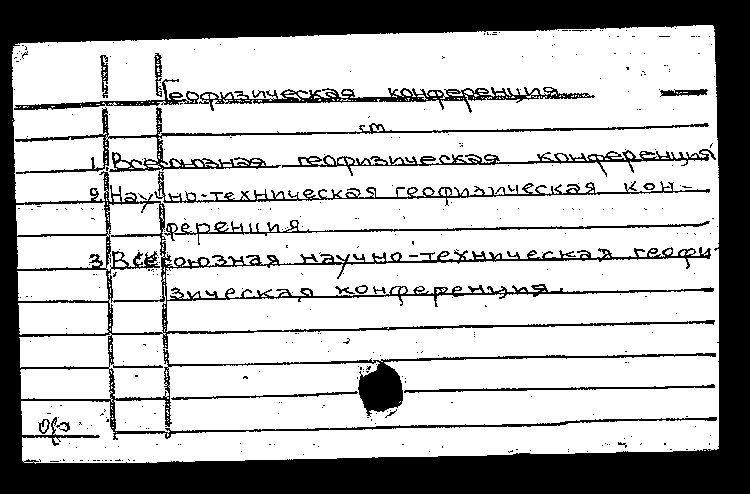 Геофизическая конференция
см.
1. Всесоюзная геофизическая конференция
2. Научно-техническая геофизическая кон-
ференция.
3. Всесоюзная научно-техническая геофи-
зическая конференция.